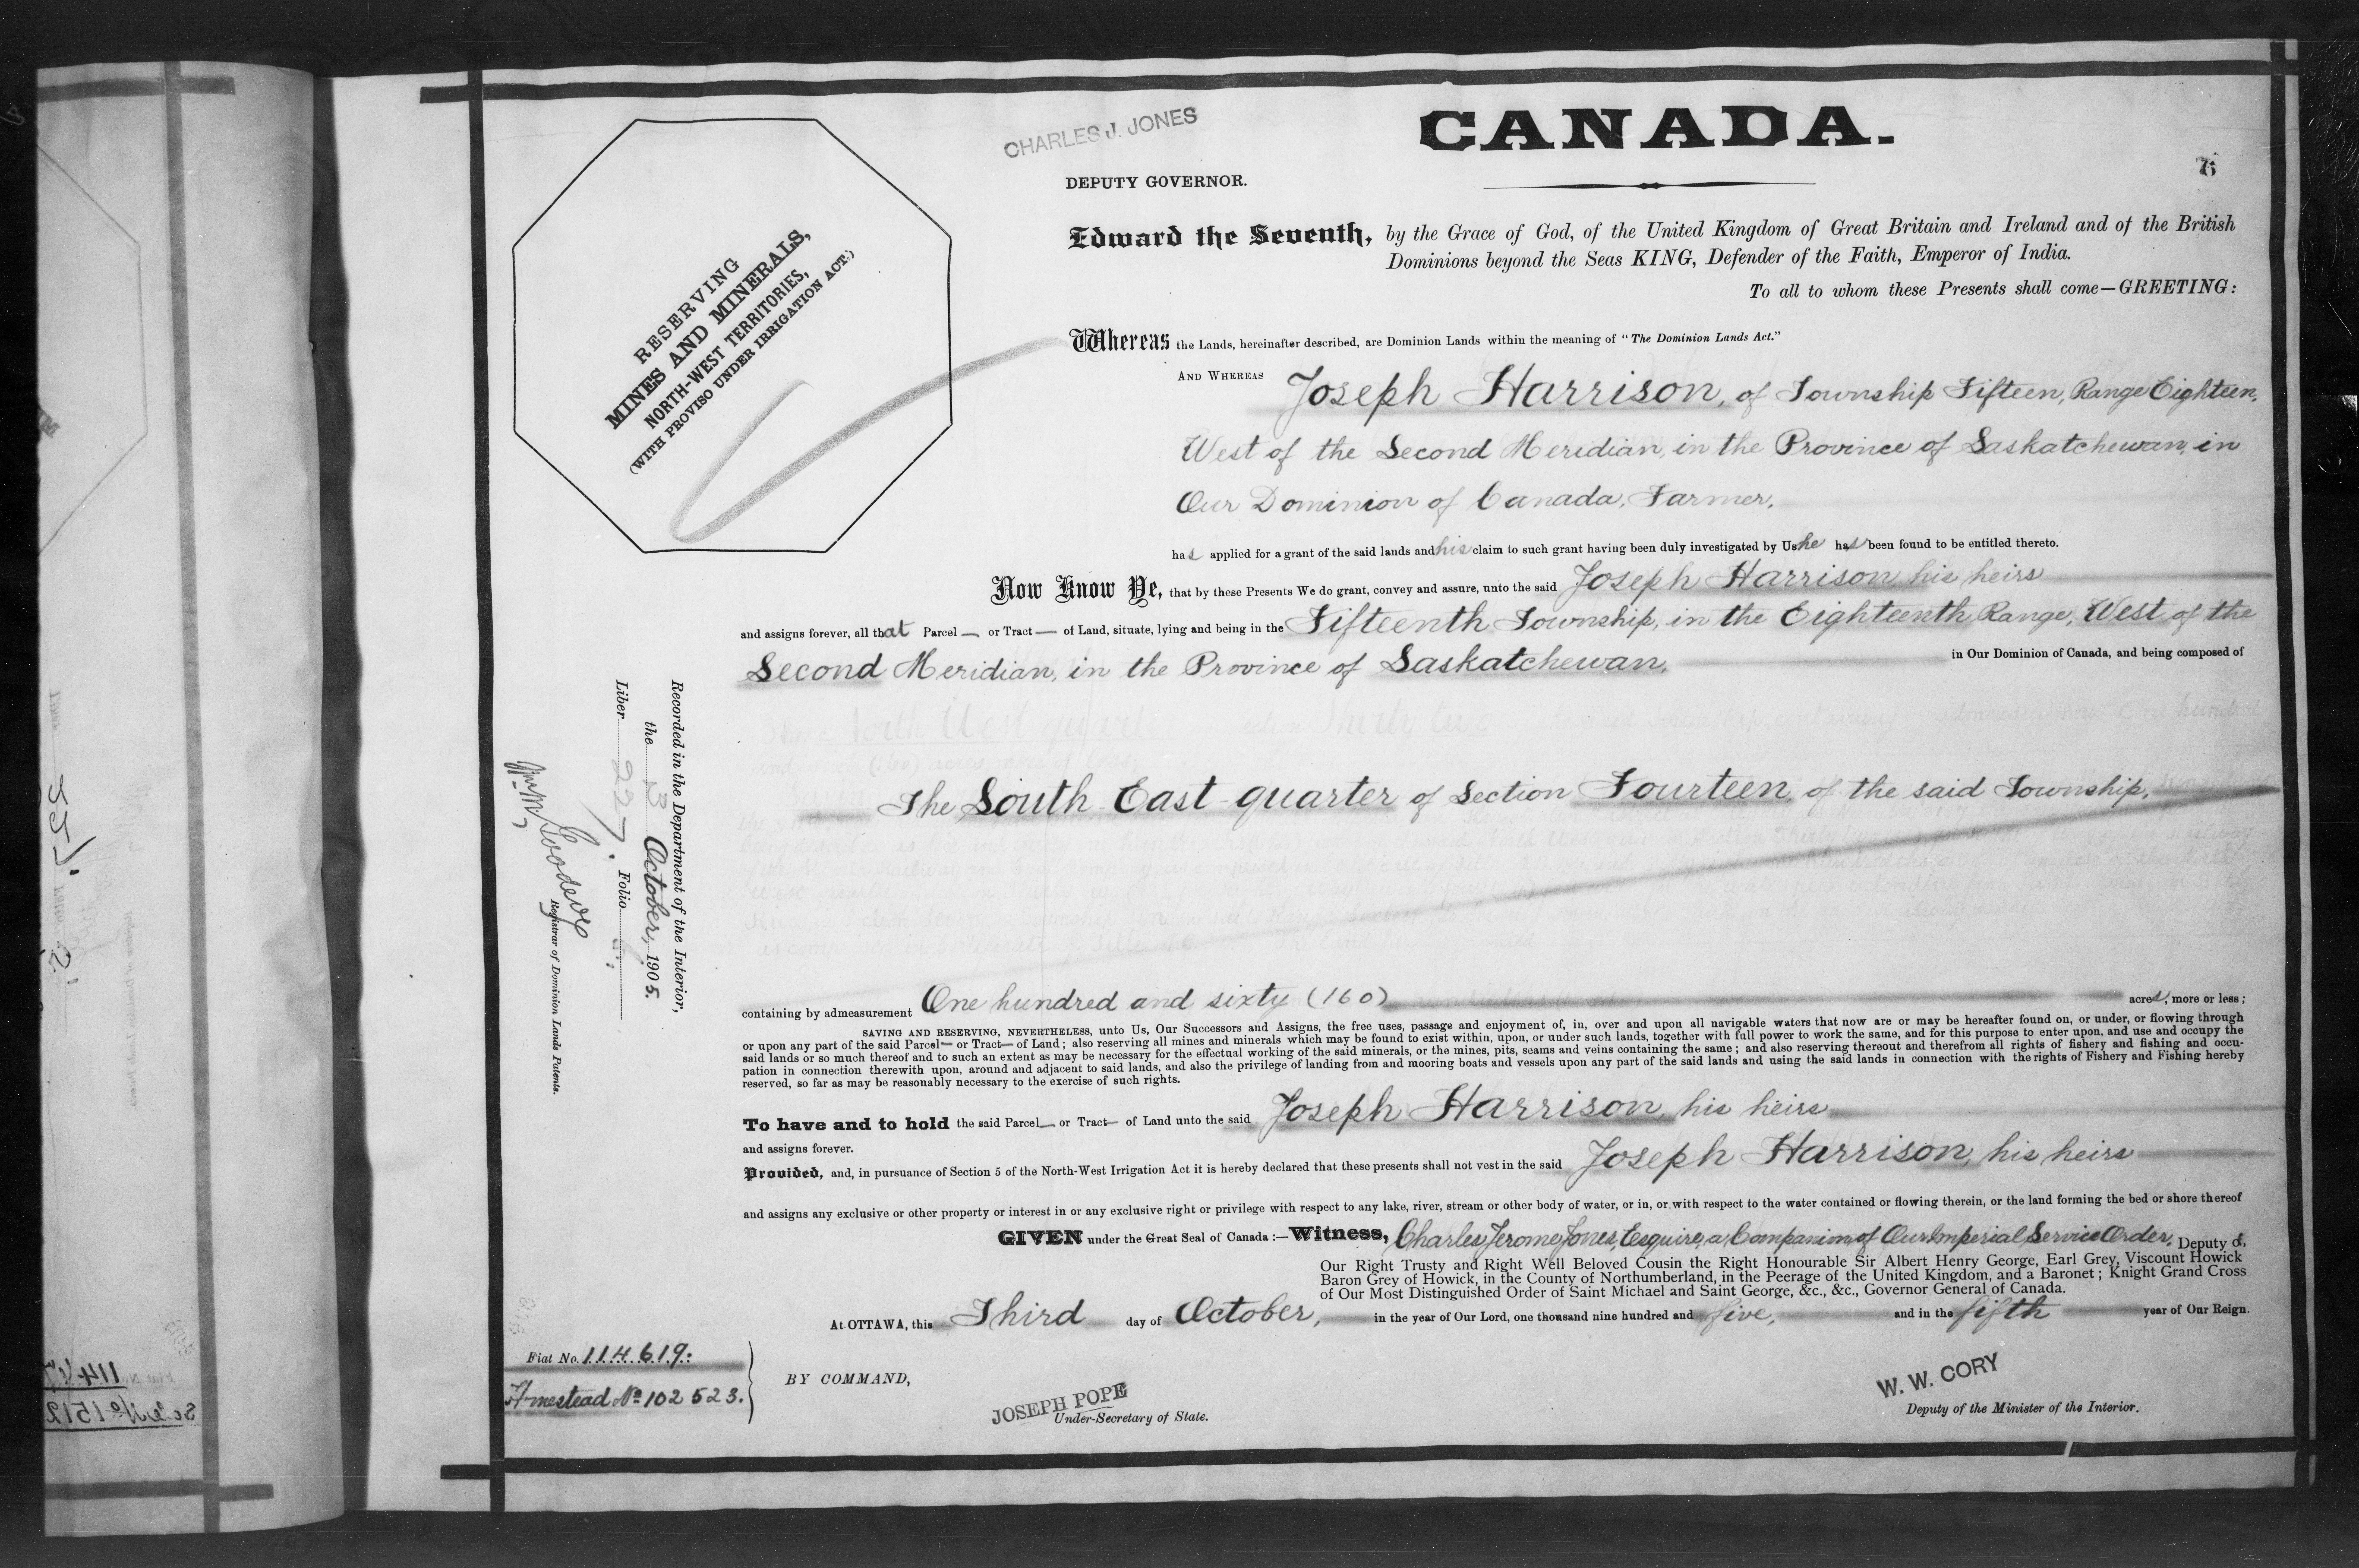 CHARLES J. JONES
CANADA.
DEPUTY GOVERNOR.
6
RESERVING
MINES AND MINERALS,
NORTH-WEST TERRITORIES,
(WITH PROVISO UNDER IRRIGATION ACT.)
Edward the Seventh, by the Grace of God, of the United Kingdom of Great Britain and Ireland and of the British
Dominions beyond the Seas KING, Defender of the Faith, Emperor of India.
To all to whom these Presents shall come—GREETING:
Whereas the Lands, hereinafter described, are Dominion Lands within the meaning of "The Dominion Lands Act."
AND WHEREAS Joseph Harrison, of Township Fifteen, Range Eighteen,
West of the Second Meridian, in the Province of Saskatchewan, in
Our Dominion of Canada, Farmer,
has applied for a grant of the said lands and his claim to such grant having been duly investigated by Us he has been found to be entitled thereto.
Now Know Ye, that by these Presents We do grant, convey and assure, unto the said Joseph Harrison, his heirs
and assigns forever, all that Parcel — or Tract — of Land, situate, lying and being in the Fifteenth Township, in the Eighteenth Range, West of the
Second Meridian, in the Province of Saskatchewan, in Our Dominion of Canada, and being composed of
The South East quarter of Section Fourteen, of the said Township,
containing by admeasurement One hundred and sixty (160) acres, more or less;
SAVING AND RESERVING, NEVERTHELESS, unto Us, Our Successors and Assigns, the free uses, passage and enjoyment of, in, over and upon all navigable waters that now are or may be hereafter found on, or under, or flowing through
or upon any part of the said Parcel— or Tract— of Land; also reserving all mines and minerals which may be found to exist within, upon, or under such lands, together with full power to work the same, and for this purpose to enter upon, and use and occupy the
said lands or so much thereof and to such an extent as may be necessary for the effectual working of the said minerals, or the mines, pits, seams and veins containing the same; and also reserving thereout and therefrom all rights of fishery and fishing and occu-
pation in connection therewith upon, around and adjacent to said lands, and also the privilege of landing from and mooring boats and vessels upon any part of the said lands and using the said lands in connection with the rights of Fishery and Fishing hereby
reserved, so far as may be reasonably necessary to the exercise of such rights.
To have and to hold the said Parcel— or Tract— of Land unto the said Joseph Harrison, his heirs
and assigns forever.
Provided, and, in pursuance of Section 5 of the North-West Irrigation Act it is hereby declared that these presents shall not vest in the said Joseph Harrison, his heirs
and assigns any exclusive or other property or interest in or any exclusive right or privilege with respect to any lake, river, stream or other body of water, or in, or with respect to the water contained or flowing therein, or the land forming the bed or shore thereof
GIVEN under the Great Seal of Canada :—Witness, Charles Jerome Jones, Esquire, a Companion of Our Imperial Service Order, Deputy of,
Our Right Trusty and Right Well Beloved Cousin the Right Honourable Sir Albert Henry George, Earl Grey, Viscount Howick
Baron Grey of Howick, in the County of Northumberland, in the Peerage of the United Kingdom, and a Baronet; Knight Grand Cross
of Our Most Distinguished Order of Saint Michael and Saint George, &c., &c., Governor General of Canada.
At OTTAWA, this Third day of October, in the year of Our Lord, one thousand nine hundred and five, and in the fifth year of Our Reign.
BY COMMAND,
JOSEPH POPE
Under-Secretary of State.
W. W. CORY
Deputy of the Minister of the Interior.
Fiat No. 114619.
Hmestead No 102523.
Recorded in the Department of the Interior,
the 13 October, 1905.
Liber 227. Folio 6.
Goodeve
Registrar of Dominion Lands Patents.